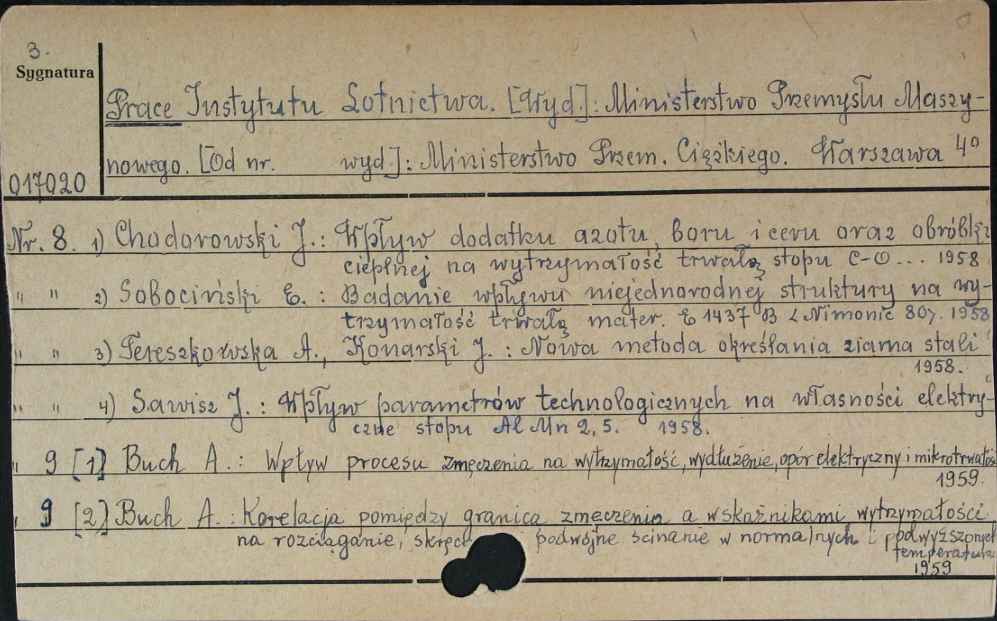 3.
Sygnatura
Prace Instytutu Lotnictwa. [Wyd.]: Ministerstwo Przemysłu Maszy-
nowego. [Od nr. wyd]: Ministerstwo Przem. Ciężkiego. Warszawa 4º
017020
Nr. 8. 1) Chodorowski J.: Wpływ dodatku azotu, boru i ceru oraz obróbki
cieplnej na wytrzymałość trwałą stopu C-O... 1958
" " 2) Sobociński E.: Badanie wpływu niejednorodnej struktury na wy-
trzymałość trwałą mater. E 1437 B < Nimonic 80>. 1958
" " 3) Tereszkowska A., Konarski J.: Nowa metoda określania ziarna stali
1958.
" " 4) Sawisz J.: Wpływ parametrów technologicznych na własności elektry-
czne stopu Al Mn 2,5. 1958.
" 9 [1) Buch A.: Wpływ procesu zmęczenia na wytrzymałość, wydłużenie, opór elektryczny i mikrotwałość
1959.
" 9 [2) Buch A.: Korelacja pomiędzy granicą zmęczenia a wskaźnikami wytrzymałości
na rozciąganie, skręc podwójne ścinanie w normalnych i podwyższonych
temperaturach
1959